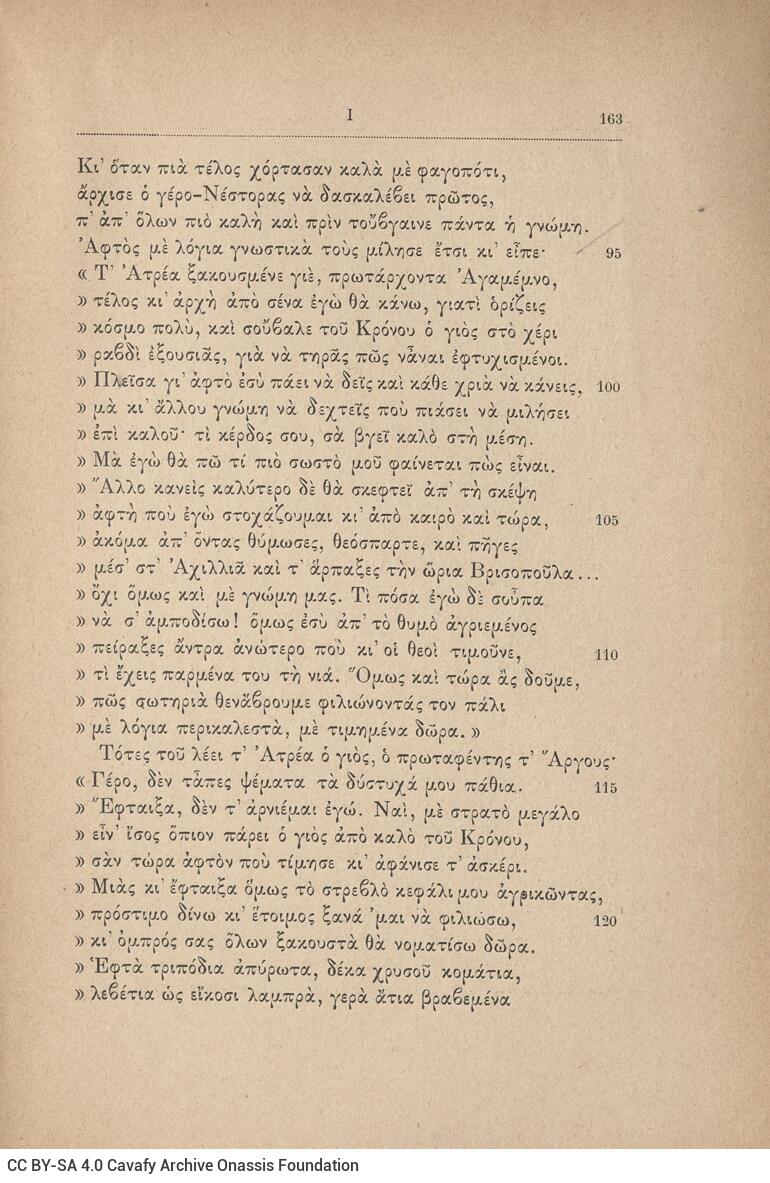 Ι
163
Κι' ὅταν πιὰ τέλος χόρτασαν καλὰ μὲ φαγοπότι,
ἄρχισε ὁ γέρο-Νέστορας νὰ δασκαλέβει πρῶτος,
π' ἀπ' ὅλων πιὸ καλὴ καὶ πρὶν τοὔβγαινε πάντα ἡ γνώμη.
Ἀφτὸς μὲ λόγια γνωστικὰ τοὺς μίλησε ἔτσι κι' εἶπε· 95
« Τ' Ἀτρέα ξακουσμένε γιὲ, πρωτάρχοντα Ἀγαμέμνο,
» τέλος κι' ἀρχὴ ἀπὸ σένα ἐγὼ θὰ κάνω, γιατὶ ὁρίζεις
» κόσμο πολὺ, καὶ σοὔβαλε τοῦ Κρόνου ὁ γιὸς στὸ χέρι
» ραβδὶ ἐξουσιᾶς, γιὰ νὰ τηρᾶς πῶς νἄναι ἐφτυχισμένοι.
» Πλεῖσα γι' ἀφτὸ ἐσὺ πάει νὰ δεῖς καὶ κάθε χριὰ νὰ κάνεις, 100
» μὰ κι' ἄλλου γνώμη νὰ δεχτεῖς ποὺ πιάσει νὰ μιλήσει
» ἐπὶ καλοῦ· τὶ κέρδος σου, σὰ βγεῖ καλὸ στὴ μέση.
» Μὰ ἐγὼ θὰ πῶ τί πιὸ σωστὸ μοῦ φαίνεται πὼς εἶναι.
» Ἄλλο κανεὶς καλύτερο δὲ θὰ σκεφτεῖ ἀπ' τὴ σκέψη
» ἀφτὴ ποὺ ἐγὼ στοχάζουμαι κι' ἀπὸ καιρὸ καὶ τώρα, 105
» ἀκόμα ἀπ' ὄντας θύμωσες, θεόσπαρτε, καὶ πῆγες
» μέσ' στ' Ἀχιλλιᾶ καὶ τ' ἅρπαξες τὴν ὥρια Βρισοποῦλα...
» ὄχι ὅμως καὶ μὲ γνώμη μας. Τὶ πόσα ἐγὼ δὲ σοὖπα
» νὰ σ' ἀμποδίσω! ὅμως ἐσὺ ἀπ' τὸ θυμὸ ἀγριεμένος
» πείραξες ἄντρα ἀνώτερο ποὺ κι' οἱ θεοὶ τιμοῦνε, 110
» τὶ ἔχεις παρμένα του τὴ νιά. Ὅμως καὶ τώρα ἂς δοῦμε,
» πῶς σωτηριὰ θενἄβρουμε φιλιώνοντάς τον πάλι
» μὲ λόγια περικαλεστὰ, μὲ τιμημένα δῶρα. »
Τότες τοῦ λέει τ' Ἀτρέα ὁ γιὸς, ὁ πρωταφέντης τ' Ἄργους·
« Γέρο, δὲν τἆπες ψέματα τὰ δύστυχά μου πάθια. 115
» Ἔφταιξα, δὲν τ' ἀρνιέμαι ἐγώ. Ναὶ, μὲ στρατὸ μεγάλο
» εἶν' ἴσος ὅπιον πάρει ὁ γιὸς ἀπὸ καλὸ τοῦ Κρόνου,
» σὰν τώρα ἀφτὸν ποὺ τίμησε κι' ἀφάνισε τ' ἀσκέρι.
» Μιὰς κι' ἔφταιξα ὅμως τὸ στρεβλὸ κεφάλι μου ἀγρικῶντας,
» πρόστιμο δίνω κι' ἕτοιμος ξανά 'μαι νὰ φιλιώσω, 120
» κι' ὀμπρός σας ὅλων ξακουστὰ θὰ νοματίσω δῶρα.
» Ἑφτὰ τριπόδια ἀπύρωτα, δέκα χρυσοῦ κομάτια,
» λεβέτια ὡς εἴκοσι λαμπρὰ, γερὰ ἄτια βραβεμένα
CC BY-SA 4.0 Cavafy Archive Onassis Foundation